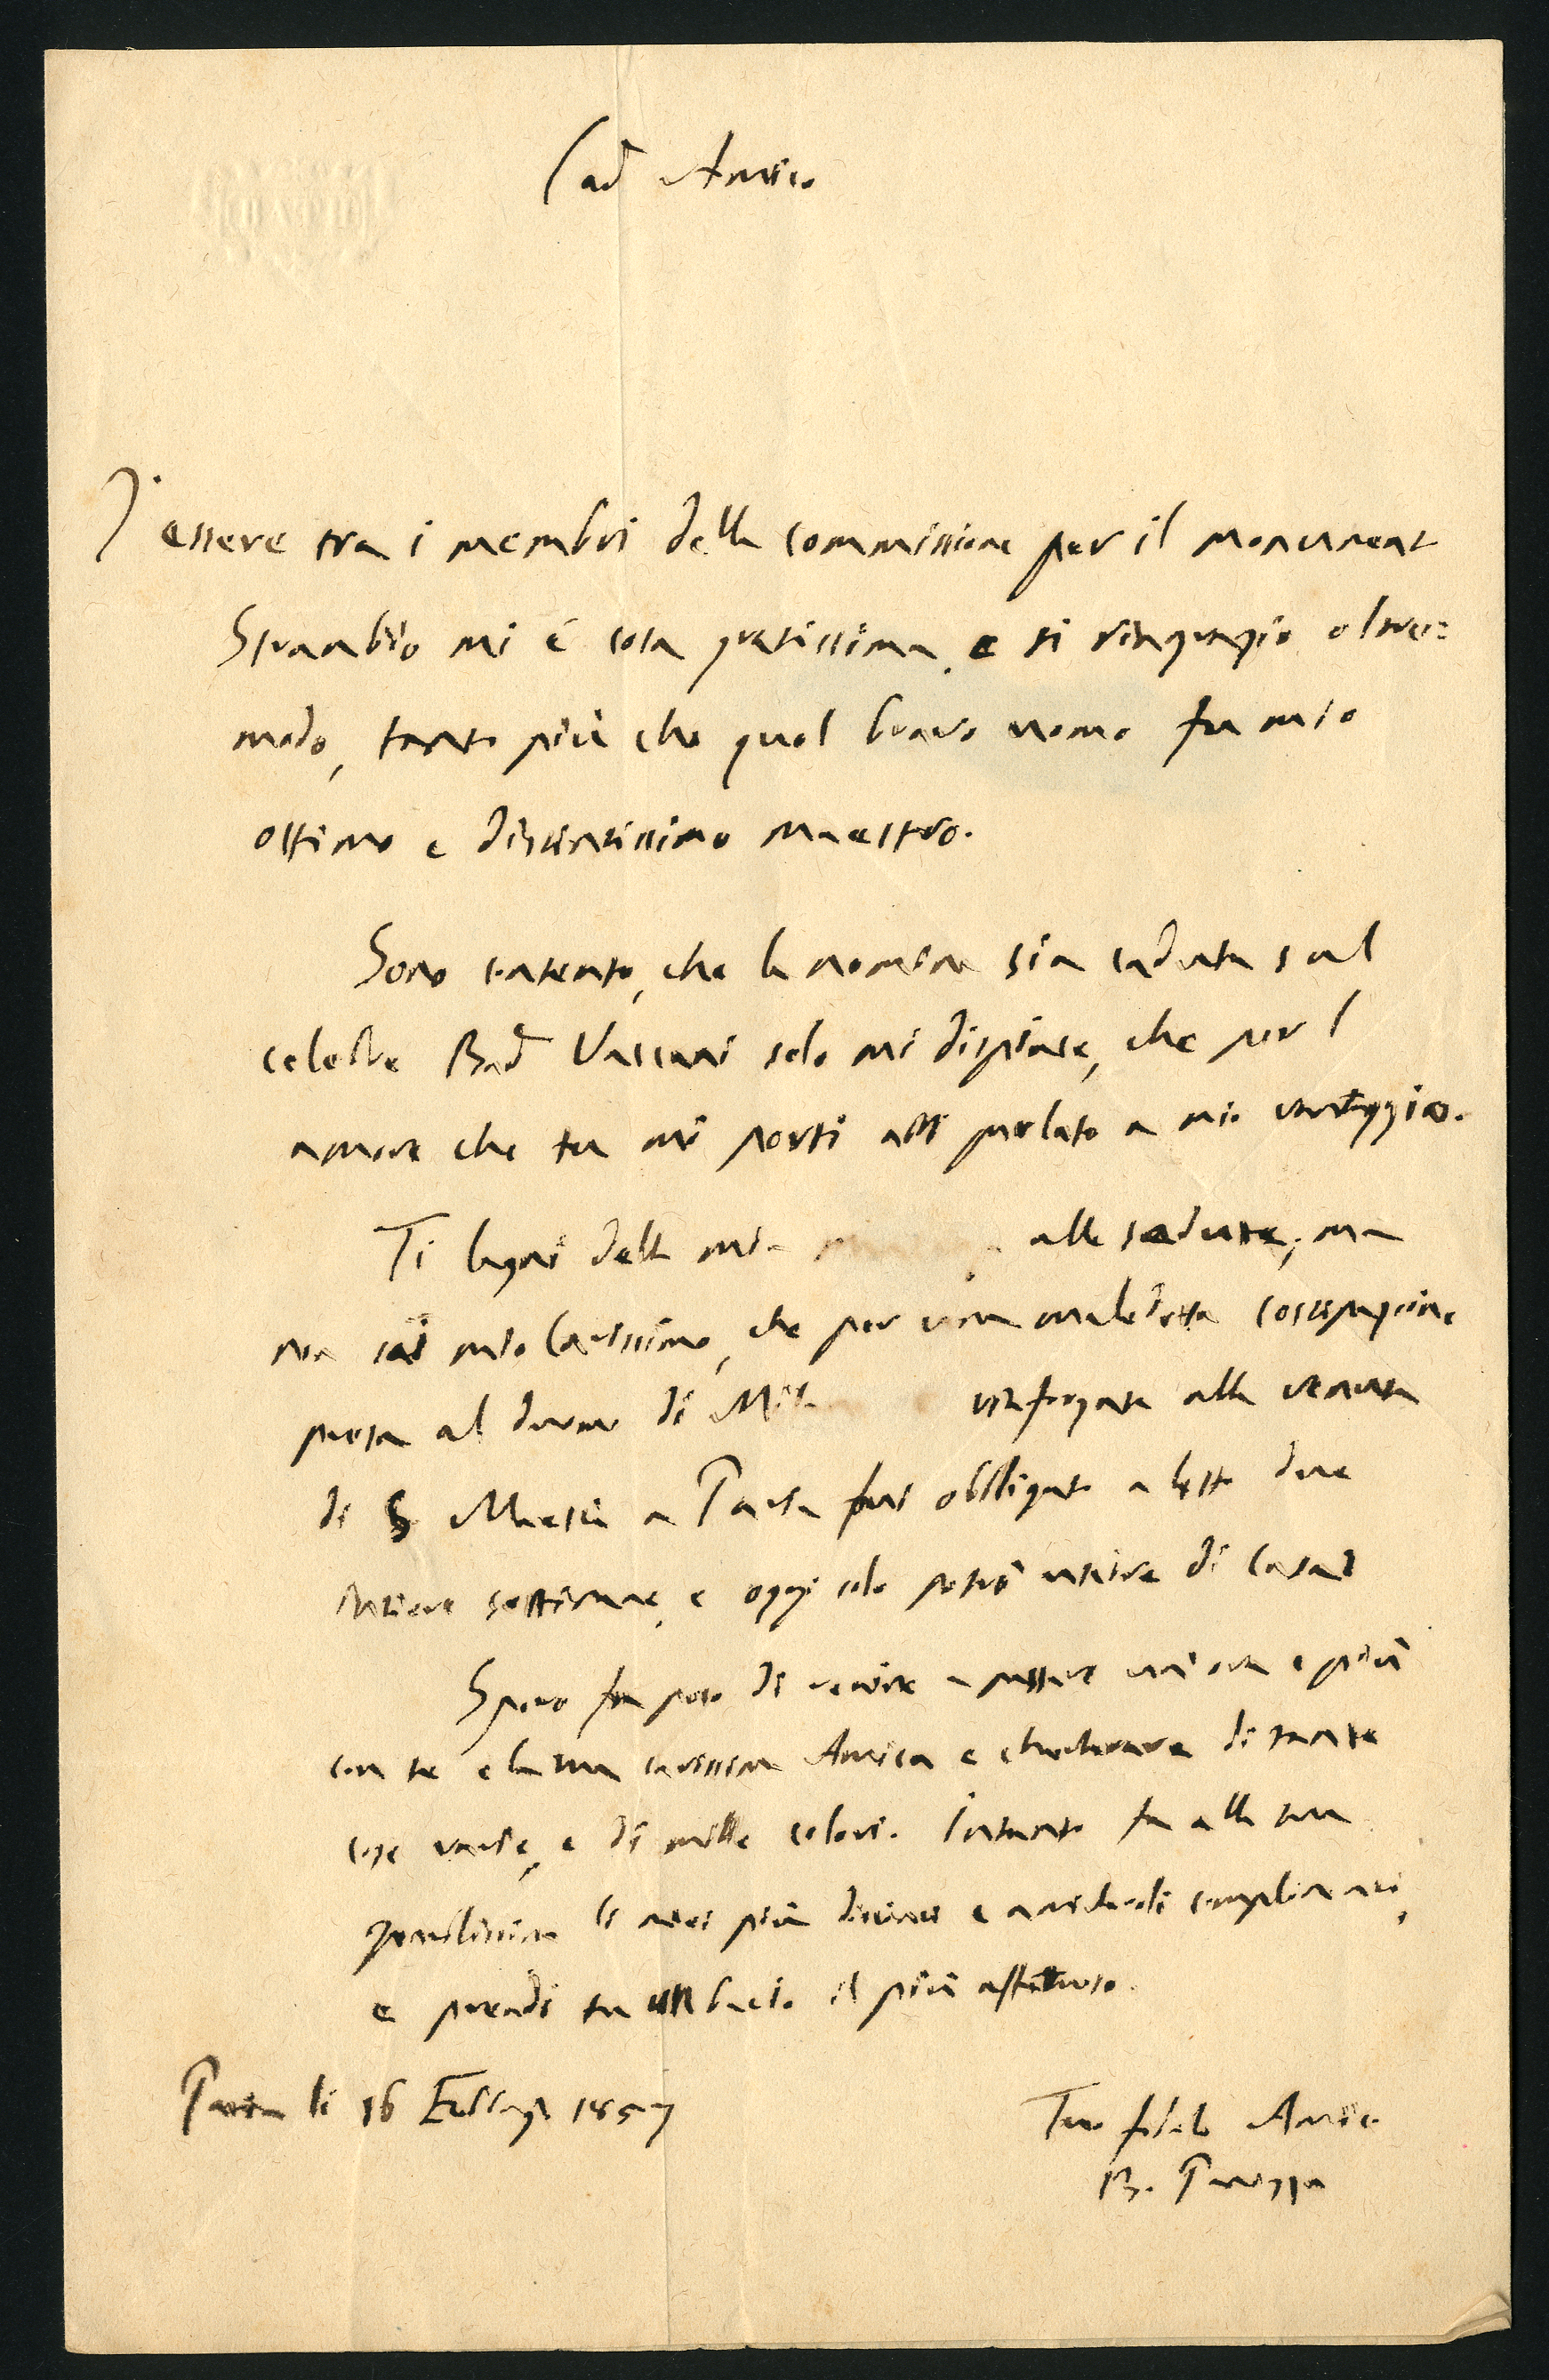 Caro Amico
D'essere tra i membri della commissione per il monument
Strambio mi è cosa gratissima, e ti ringrazio oltre=
modo, tanto più che quel bravo uomo fu mio
ottimo e distintissimo maestro.
Sono contento, che la nomina sia caduta sul
celebre Vaccani solo mi dispiace, che per l
amore che tu mi porti abbi parlato a mio vantaggio.
Ti lagni della mia alle sedute, ma
non sai mio Carissimo, che per una maledetta costipazione
presa al duomo di rinforzata alla venuta
di S Maestà a Pavia fui obbligato a letto due
intiere settimane, e oggi solo potrò uscire di Casa
Spero fra poco di venire a passare un'ora e più
con te e la tua carissima Amica e chiacherare di tante
cose varie, e di mille colori. Intanto fa alla tua
gentilissima li miei più distinti e amichevoli complimenti,
e prendi tu un bacio il più affettuoso.
Pavia li 16 Febbrajo 1857
Tuo fidele Amico
B. Panizza